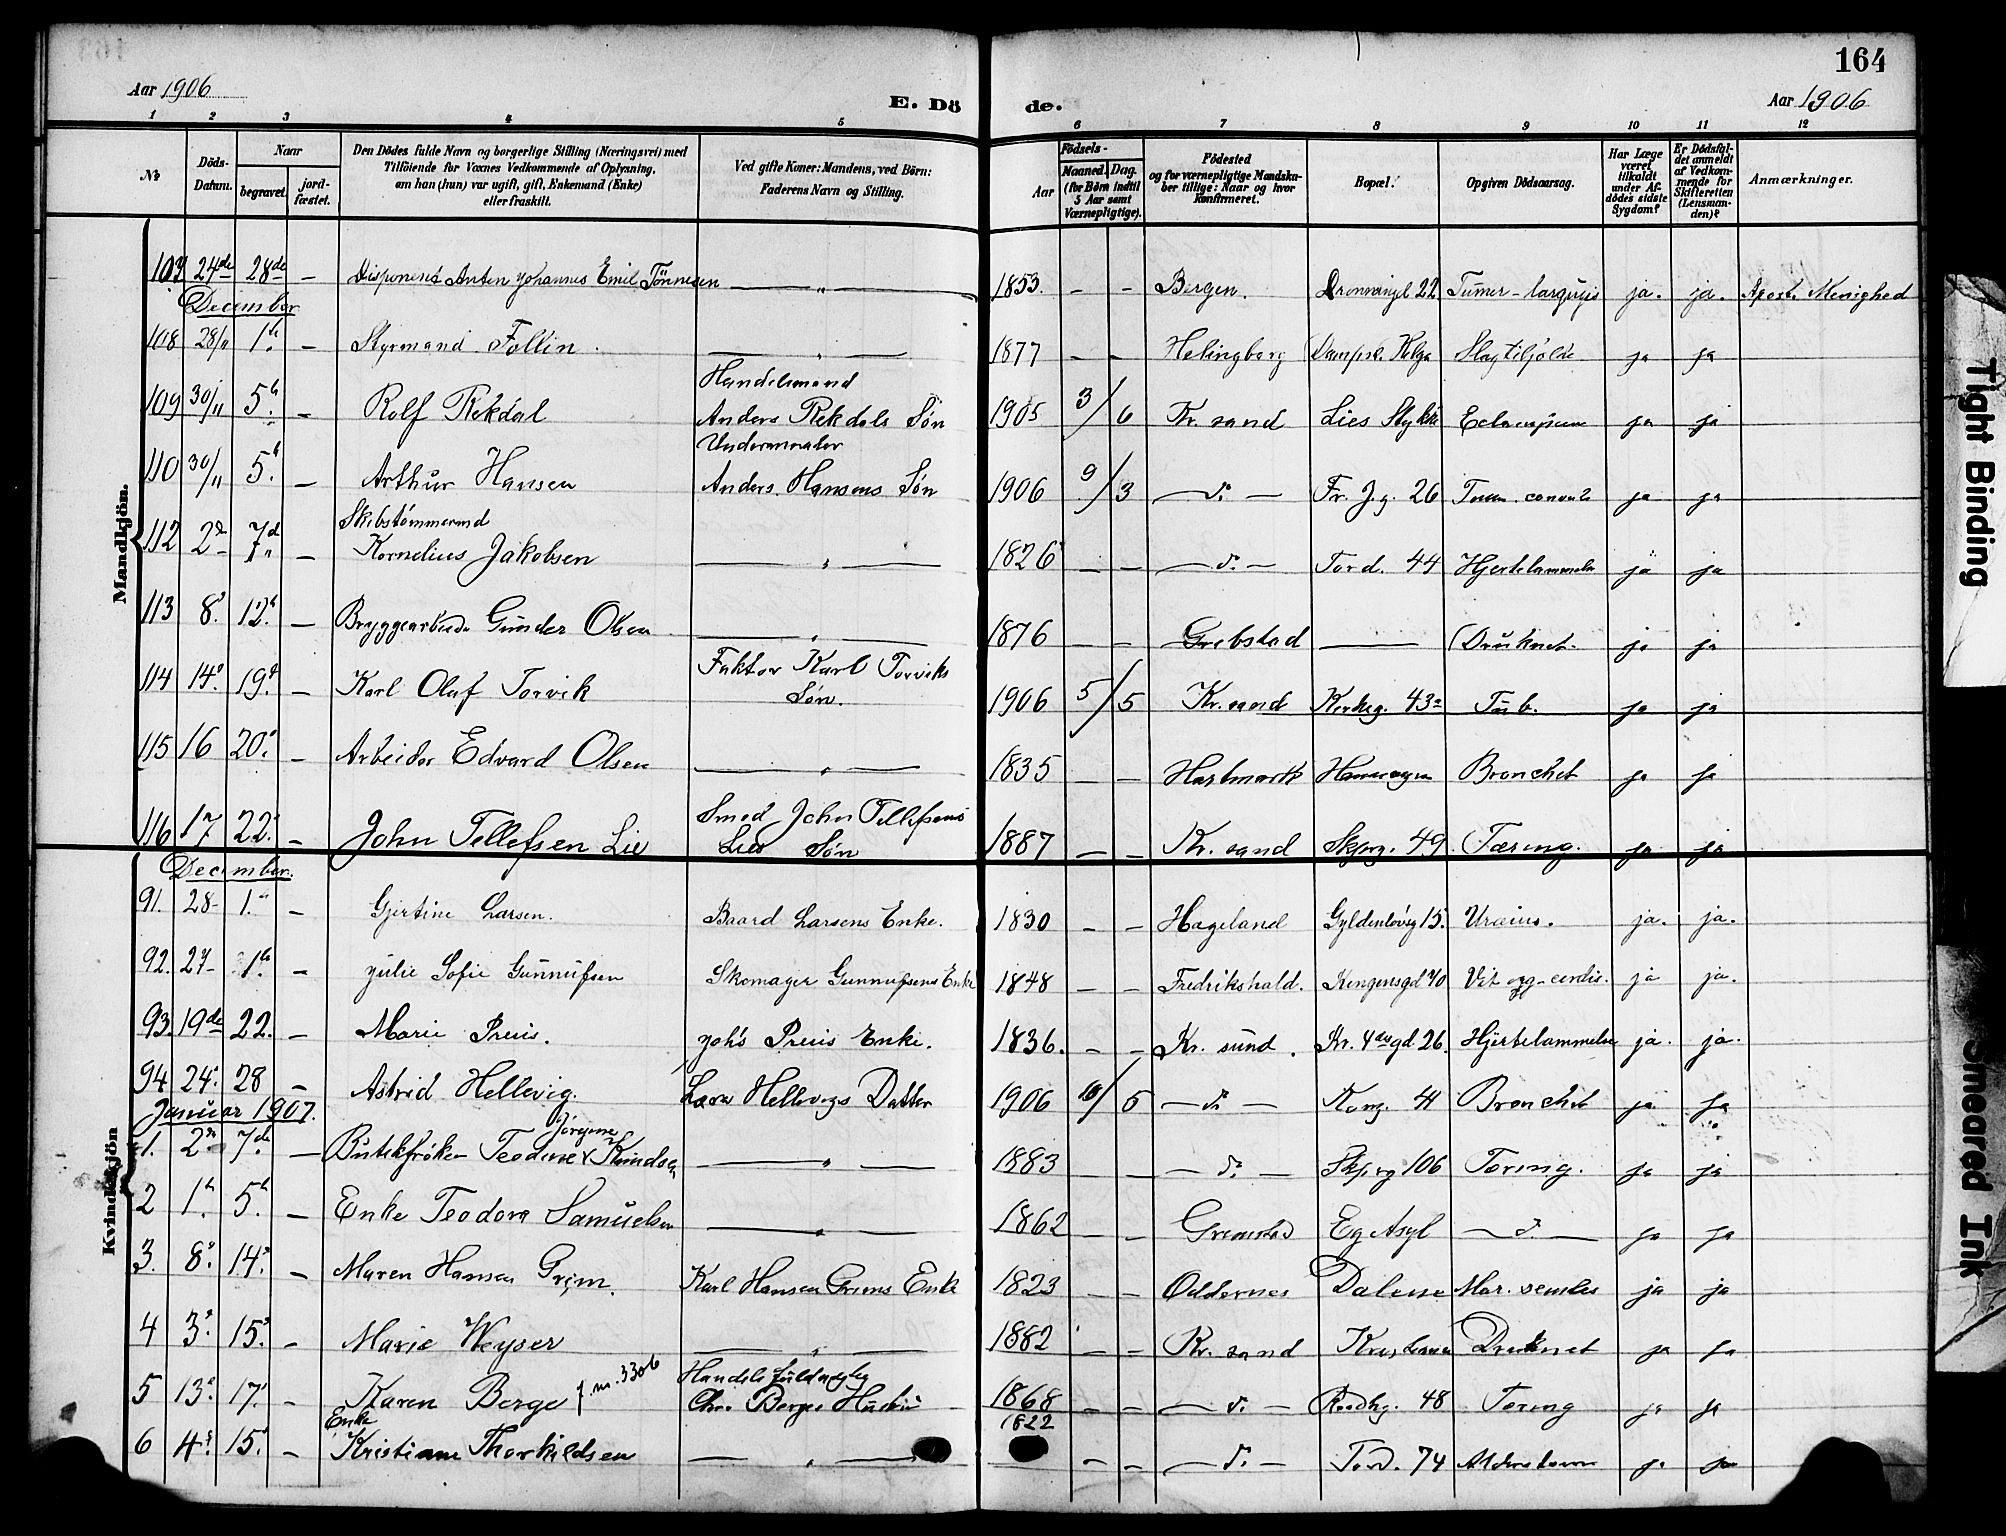 164
Aar 1906
E. Dö
de.
Aar 1906
1 2 3 4 5 6 7 8 9 10 11 12
№
Döds-Datum.
Naar
begravet.
jord-fæstet.
Den Dödes fulde Navn og borgerlige Stilling (Næringsvei) med
Tilföiende for Voxnes Vedkommende af Oplysning,
om han (hun) var ugift, gift, Enkemand (Enke)
eller fraskilt.
Ved gifte Koner: Mandens, ved Börn:
Faderens Navn og Stilling.
Födsels-
Aar
Maaned.
Dag.
(for Børn indtil
5 Aar samt
Værnepligtige).
Födested
og for værnepligtige Mandska-
ber tillige: Naar og hvor
konfirmeret.
Bopæl.
Opgiven Dödsaarsag.
Har Læge
været
tilkaldt
under Af-
dödes sidste
Sygdom?
Er Dödsfal-
det anmeldt
af Vedkom-
mende for
Skifteretten
(Lensman-
den)?
Anmærkninger.
Mandkjön.
107 24de 28de – Disponent Anton Johannes Emil Tönnesen — „ — 1853. – – Bergen. Dronningl 22 Tumor ja. ja. Apost. Menighed
December
108 28/11 1ste – Styrmand Follin. — „ — 1877 – – Helsingborg Dampsk. Helga ja ja
109 30/11 5te – Rolf Rekdal Handelsmand Anders Rekdals Søn 1905 3/6 Kr. sand Lies Stykke ja ja
110 30/11 5te – Arthur Hansen Anders Hansens Søn 1906 9/3 — do — Fr. J. g. 26 ja ja
112 2de 7de – Skibstömmermd Kornelius Jakobsen — „ — 1826 – – — do — Tord. 44 Hjertelammelse ja ja
113 8de 12te – Bryggearbeider Gunder Olsen — „ — 1876 – – — Druknet. ja ja
114 14de 19de – Karl Olaf Torvik Faktor Karl Torviks Søn. 1906 5/5 Kr. sand Kirkeg. 43a Tub. ja ja
115 16 20de – Arbeider Edvard Olsen — „ — 1835 – – Hartmark Bronchit ja ja
116 17 22de – John Tellefsen Lie Smed John Tellefsens Lies Søn 1887 – – Kr. sand Skprg. 49 Tæring. ja ja
Kvindekjön
December.
91. 28– 1ste – Gjertine Larsen. Baard Larsens Enke. 1830 – – Hageland Gyldenlövsg 15. Uræmi. ja. ja.
92. 27– 1ste – Julie Sofie Gunnufsen Skomager Gunnufsens Enke 1848 – – Fredrikshald. Kongensgd 40 Vit org. cordis. ja ja.
93. 19de 22. – Marie Preus. Johs Preus Enke. 1836. – – Kr. sund. Kr. 4des gd 26. Hjertelammelse ja. ja.
94 24de 28 – Astrid Hellevig. Lars Hellevigs Datter 1906 10/5 — do — Kong. 41 Bronchit ja ja
Januar 1907.
1. 2den 7de – Butikfröken Teodine Jörgine Knudsen — „ — 1883 – — do — Skprg 106 Tæring. ja ja
2 1ste 5te – Enke Teodora Samuelsen — „ — 1862 – – Grimstad Eg Asyl — do — ja ja
3. 8de 14de – Maren Hansen Grim. Karl Hansen Grims Enke 1823 – – Oddernes Dalene Mar. senilis ja ja
4 3de 15de – Marie Weyser — „ — 1882 – – Kr. sand Druknet ja ja
5 13de 17de – Karen Berge f. nr. 3306 Handelsfuldmægtig Chr. Berges Hustru 1868 – – — do — Raadhg. 48 Tæring ja ja
6 4de 15de – Enke Kristiane Thorkildsen — „ — 1822 – – — do — Tord. 74 Alderdom ja ja
Tight Binding
Smeared Ink